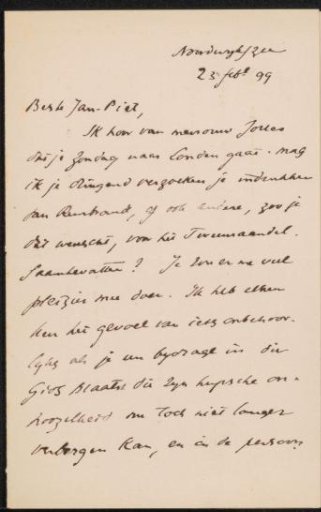 Noordwijk/Zee
23 febr 99
Beste Jan-Piet,
Ik hoor van mevrouw Jolles
dat je Zondag naar Londen gaat. mag
ik je dringend verzoeken je indrukken
van Rembrandt, of ook andere, zoo je
dit wenscht, voor het Tweemaandel.
Je zou er me veel
pleizier mee doen. Ik heb elken
keer het gevoel van iets onbehoor-
lijks als je een bijdrage in die
Gids plaatst die zijn hupsche on-
noozelheid nu toch niet langer
verbergen kan, en in de persoon